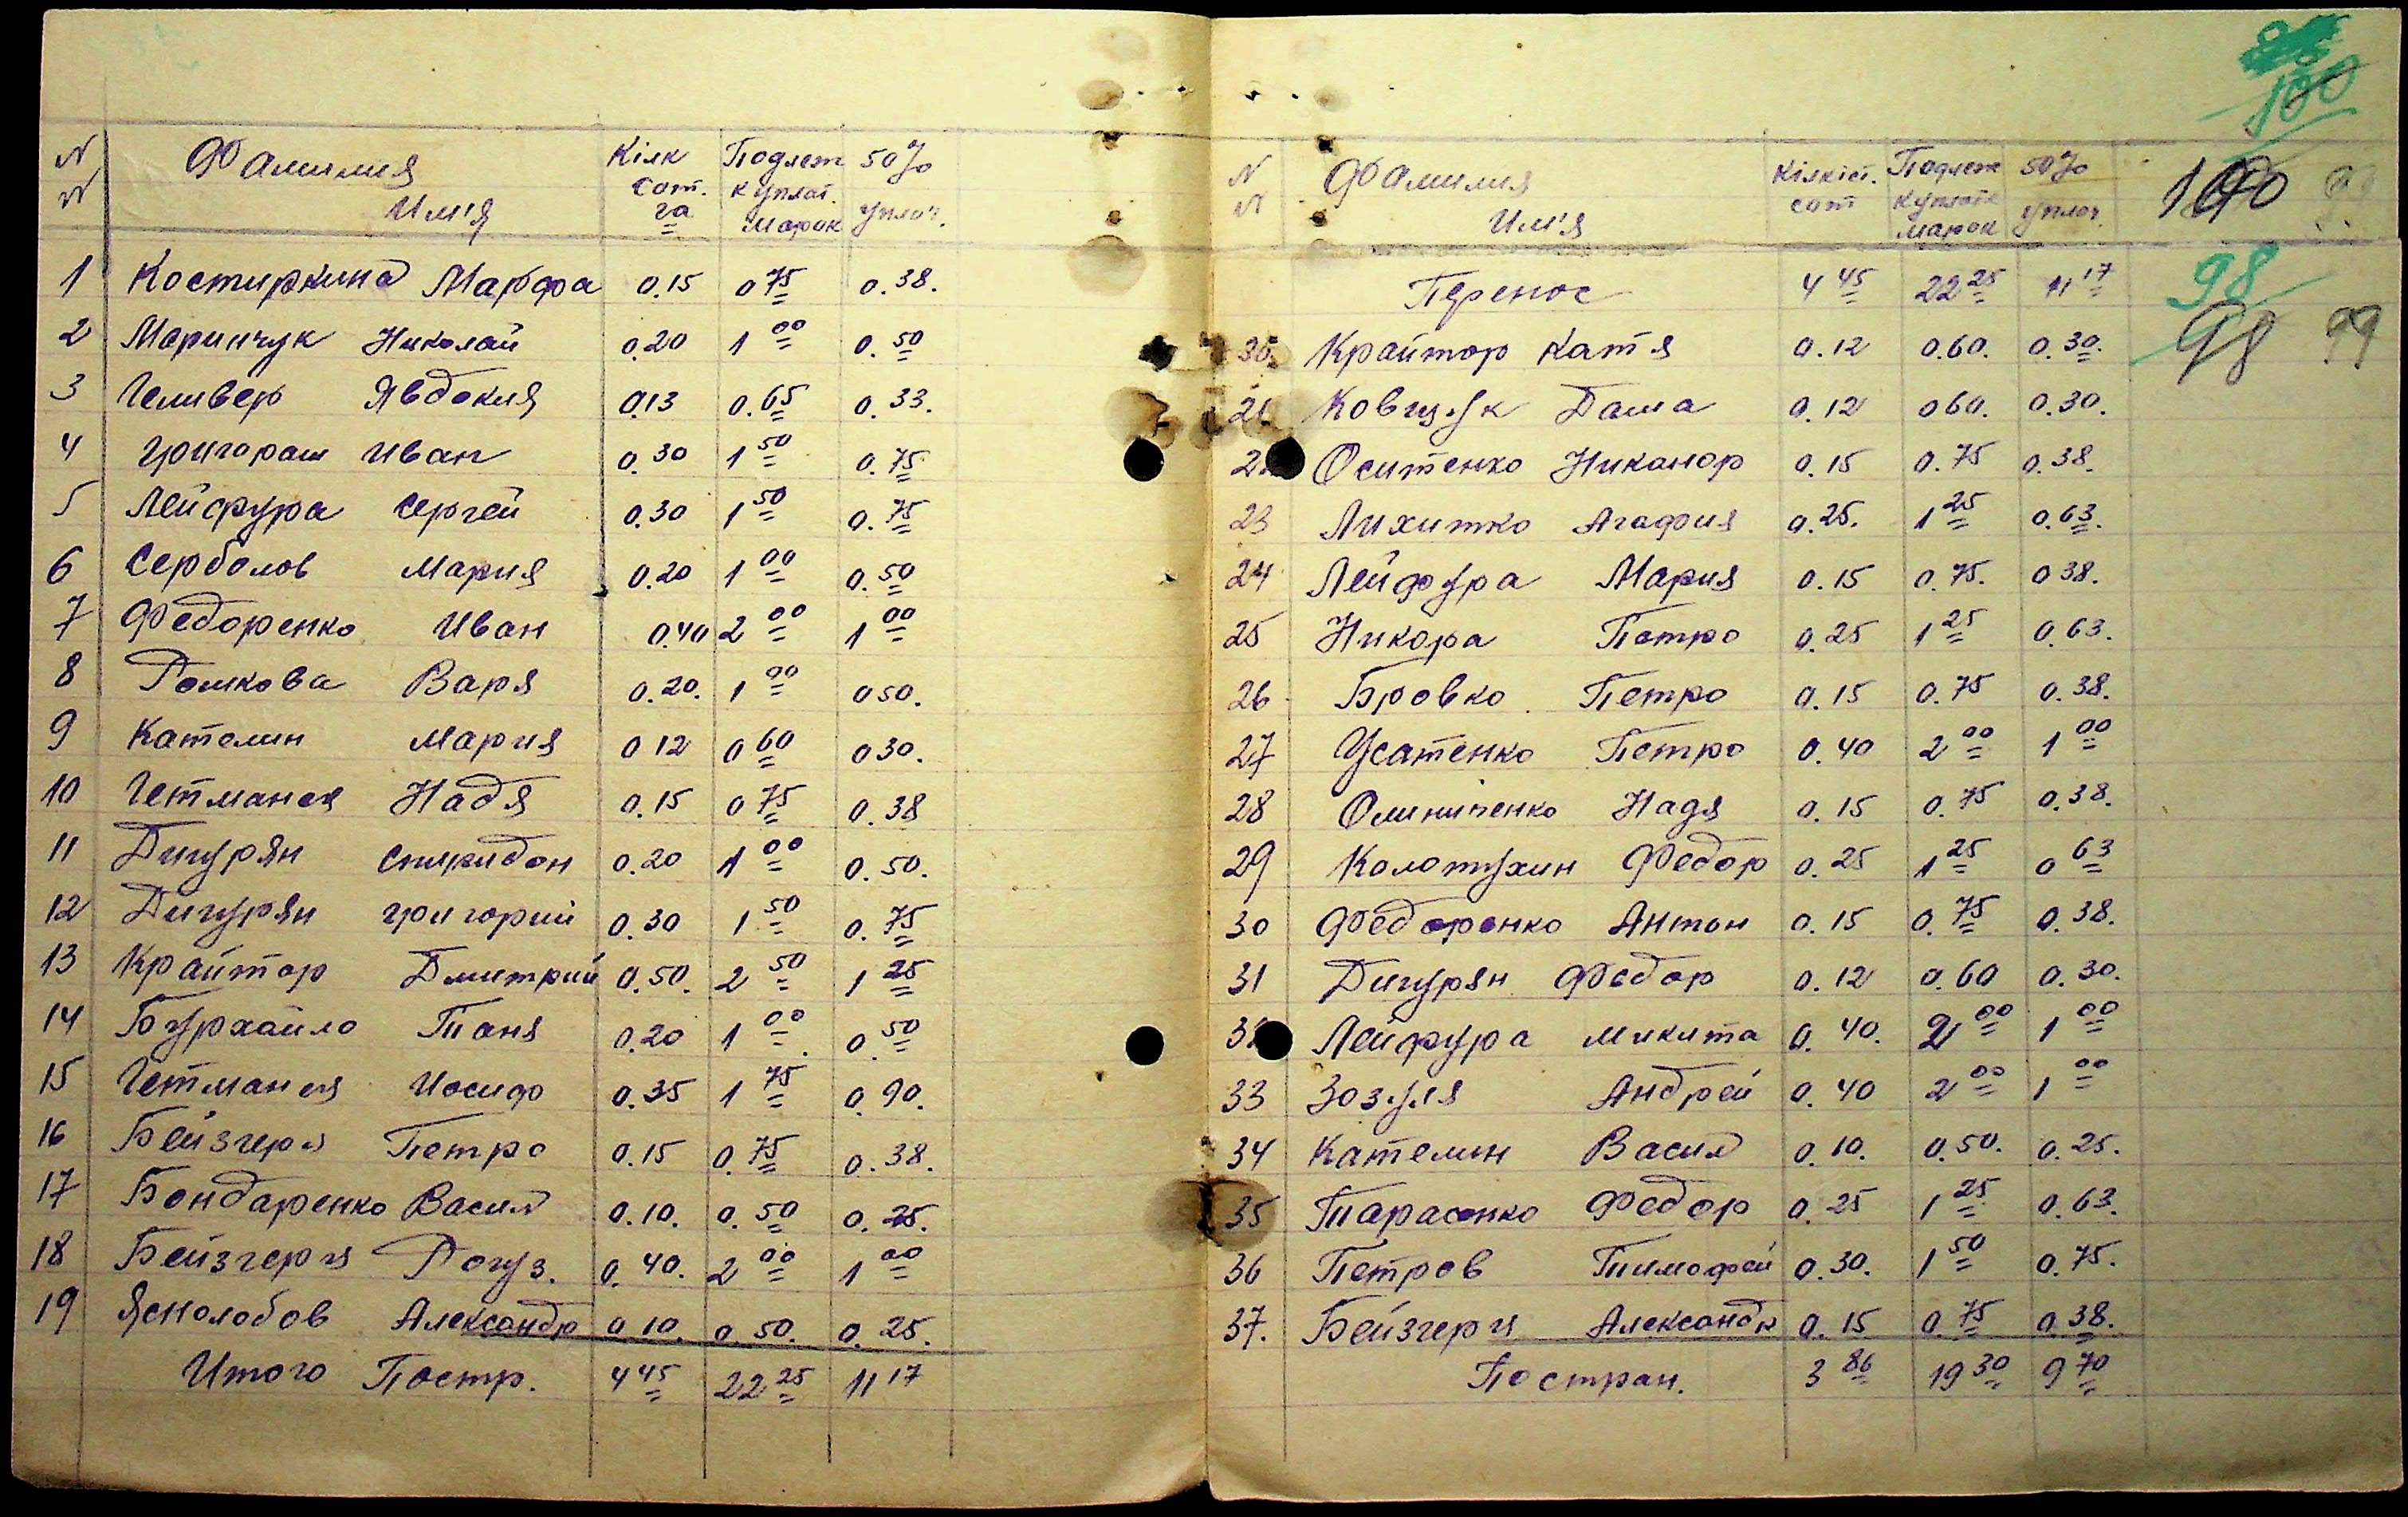 N N Фамилия Им'я Кілк сот. га Подлеж к уплат. марок 50% уплоч.
1 Костиркина Марфа 0.15 0 75 0.38.
2 Маринчук Николай 0.20 1 00 0.50
3 Геливер Явдокия 0.13 0.65 0.33.
4 Григораш Иван 0.30 1 50 0.75
5 Лейфура Сергей 0.30 1 50 0.75
6 Серболов Мария 0.20 1 00 0.50
7 Федоренко Иван 0.40 2 00 1 00
8 Ромкова Варя 0.20. 1 00 0 50.
9 Кателин Мария 0 12 0 60 0 30.
10 Гетманся Надя 0.15 0 75 0.38
11 Дигурян Спиридон 0.20 1 00 0.50.
12 Дигурян Григорий 0.30 1 50 0.75
13 Крайтор Дмитрий 0.50. 2 50 1 25
14 Бурхайло Таня 0.20 1 00 0.50
15 Гетманся Иосиф 0.35 1 75 0.90.
16 Бейзгеря Петро 0.15 0.75 0.38.
17 Бондаренко Васил 0.10. 0.50 0.25.
18 Бейзгеря 0.40. 2 00 1 00
19 Яснолобов Александр 0 10. 0.50. 0.25.
Итого Постр. 4 45 22 25 11 17
100
N N Фамилия Им'я Кілкіст. сот Подлеж к уплате марок 50% уплоч. 100
Перенос 4 45 22 25 11 17 98
Крайтор Катя 0.12 0.60. 0.30. 98 99
21 Ковцук Даша 0.12 0 60. 0.30.
Оситенко Никанор 0.15 0.75 0.38.
23 Лихитко Агафия 0.25. 1 25 0.63.
24 Лейфура Мария 0.15 0.75. 0 38.
25 Никора Петро 0.25 1 25 0.63.
26 Бровко Петро 0.15 0.75 0.38.
27 Усатенко Петро 0.40 2 00 1 00
28 Олиниченко Надя 0.15 0.75 0.38.
29 Колотухин Федор 0.25 1 25 0 63
30 Федоренко Антон 0.15 0.75 0.38.
31 Дигурян Федор 0.12 0.60 0.30.
Лейфура Микита 0.40. 2 00 1 00
33 Зозуля Андрей 0.40 2 00 1 00
34 Кателин Васил 0.10. 0.50. 0.25.
35 Тарасенко Федор 0.25 1 25 0.63.
36 Петров Тимофей 0.30. 1 50 0.75.
37. Бейзгеря Александр 0.15 0.75 0.38.
Постран. 3 86 19 30 9 70